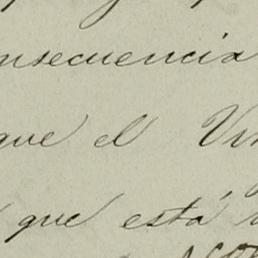 nsecuencia
que el Vi
que está